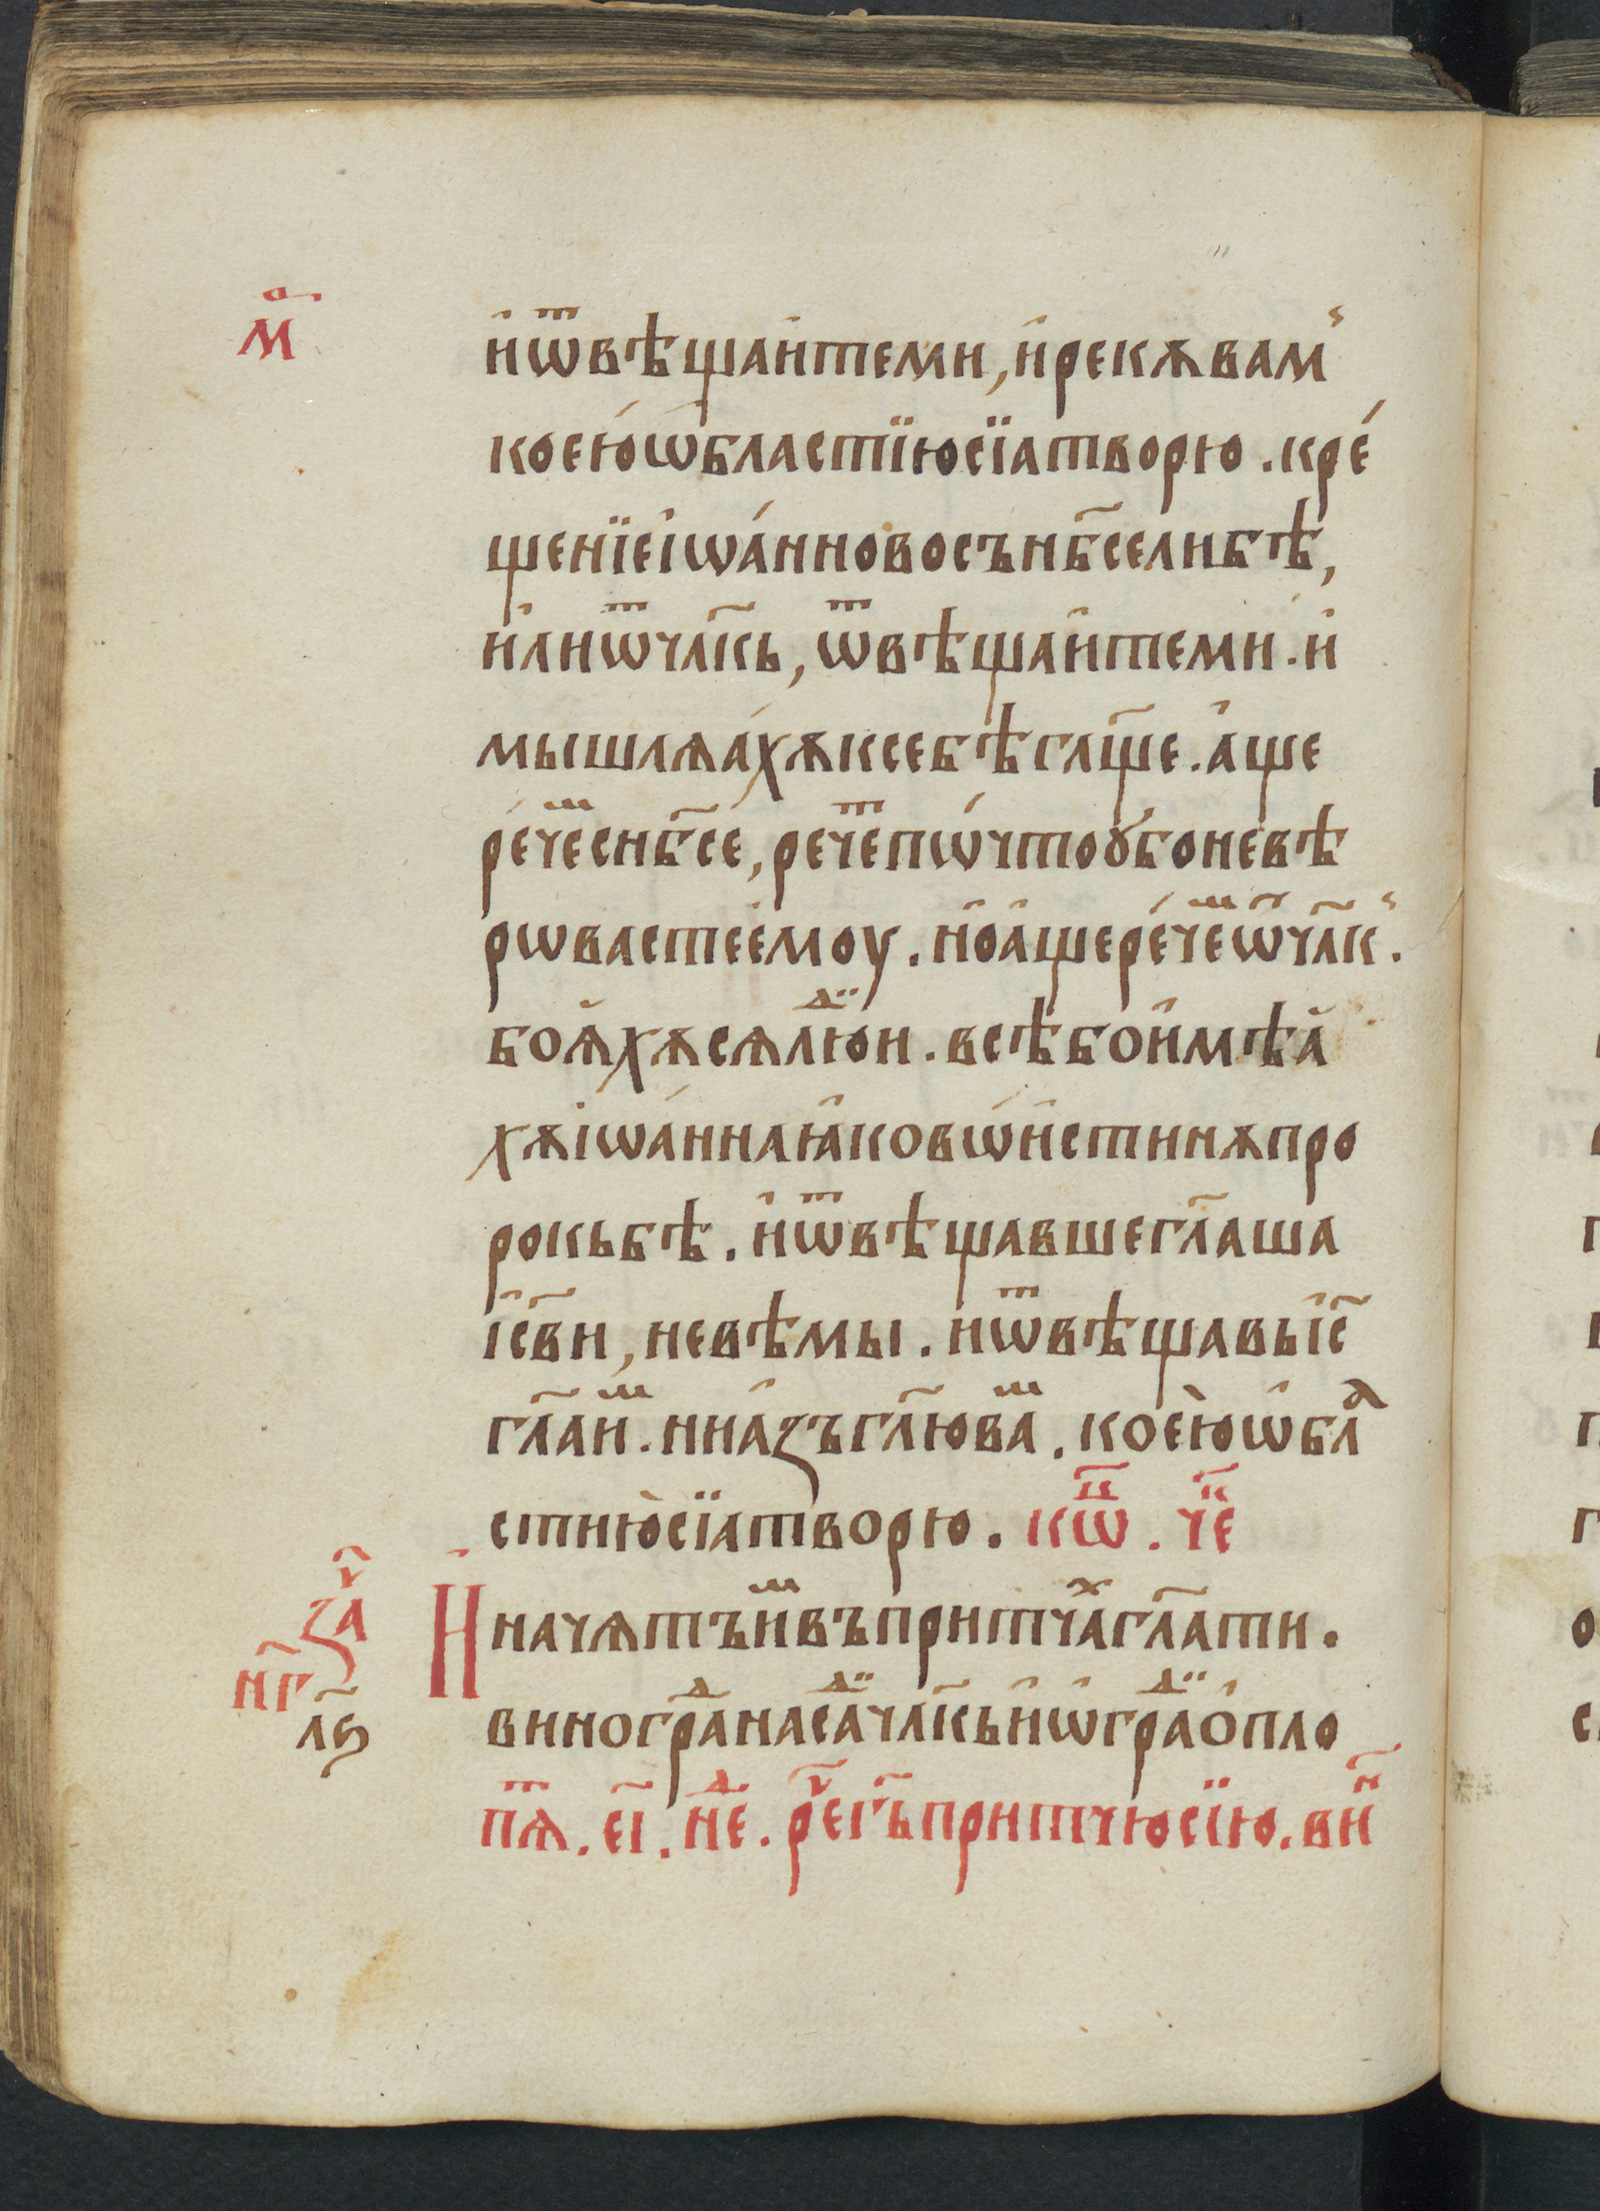 м҃а
и҆ѿвѣщаи҆теми, и҆рекѫвам
коею́ѡ҆бластїюсїатворю. кре́
щенїеі҆ѡа́нновосън҃бселибѣ,
и҆лиѿчл҃кь, ѿвѣщаи҆теми. и҆
мышлѧа́хѫксебѣгл҃ще. а҆ще
ре́чеⷨсин҃бсе́, речеⷮпѡ́чтоꙋ҆боневѣ
рѡвастеемоу. н҆оа҆щере́чеⷨѿчл҃к.
боѧ҆хѫсѧлюⷣи. всѣбои҆мѣа҆
хѫі҆ѡа́ннаꙗ҆ковѡи҆стинѫпро
рокьбѣ. и҆ѿвѣщавшегл҃аша
і҆с҃ви, невѣмы. и҆ѿвѣщавьі҆с҃
гл҃аиⷨ. ниа҆зъгл҃юваⷨ. коѐюѡ҆блⷶ
стию̀сїатворю. кѡⷰ҇. чеⷦ҇
за҃ч
нг҃
лѕ҃
И҆начѧтъи҆ⷨвъпритчаⷯгл҃ати.
виногра́ⷣнасаⷣчл҃кьи҆ѡ҆граⷣо҆пло
пѧⷮ. е҃і. неⷣ. реⷱ҇гь҃притчюсїю. виⷩ҇